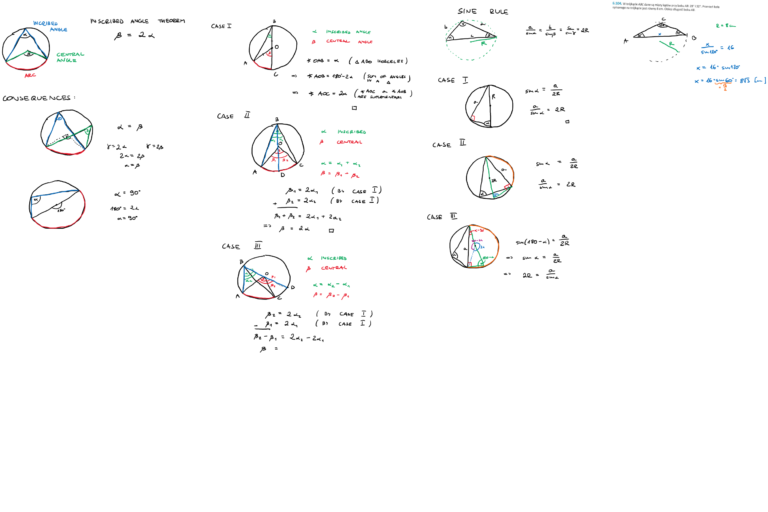 INSCRIBED ANGLE
CENTRAL ANGLE
ABC
INSCRIBED ANGLE THEOREM
β = 2α
CONSEQUENCES:
α = β
γ = 2α γ = 2β
2α = 2β
α = β
α = 90°
180° = 2α
α = 90°
CASE I
α INSCRIBED
β CENTRAL
∢ OAB = α (△ ABO ISOSCELES)
⇒ ∢ AOB = 180° - 2α (SUM OF ANGLES IN A △)
⇒ ∢ AOC = 2α
CASE II
α INSCRIBED
β CENTRAL
α = α₁ + α₂
β₁ = 2α₁ (BY CASE I)
+ β₂ = 2α₂ (BY CASE I)
β₁ + β₂ = 2α₁ + 2α₂
⇒ β = 2α □
CASE III
α INSCRIBED
β CENTRAL
α = α₂ - α₁
β = β₂ - β₁
β₂ = 2α₂ (BY CASE I)
- β₁ = 2α₁ (BY CASE I)
β₂ - β₁ = 2α₂ - 2α₁
β =
SINE RULE
a/sin α = b/sin β = c/sin γ = 2R
CASE I
sin α = a/2R
a/sin α = 2R
□
CASE II
sin α = a/2R
a/sin α = 2R
CASE III
sin(180 - α) = a/2R
⇒ sin α = a/2R
⇒ 2R = a/sin α
a/sin120° = 16
a = 16 · sin120°